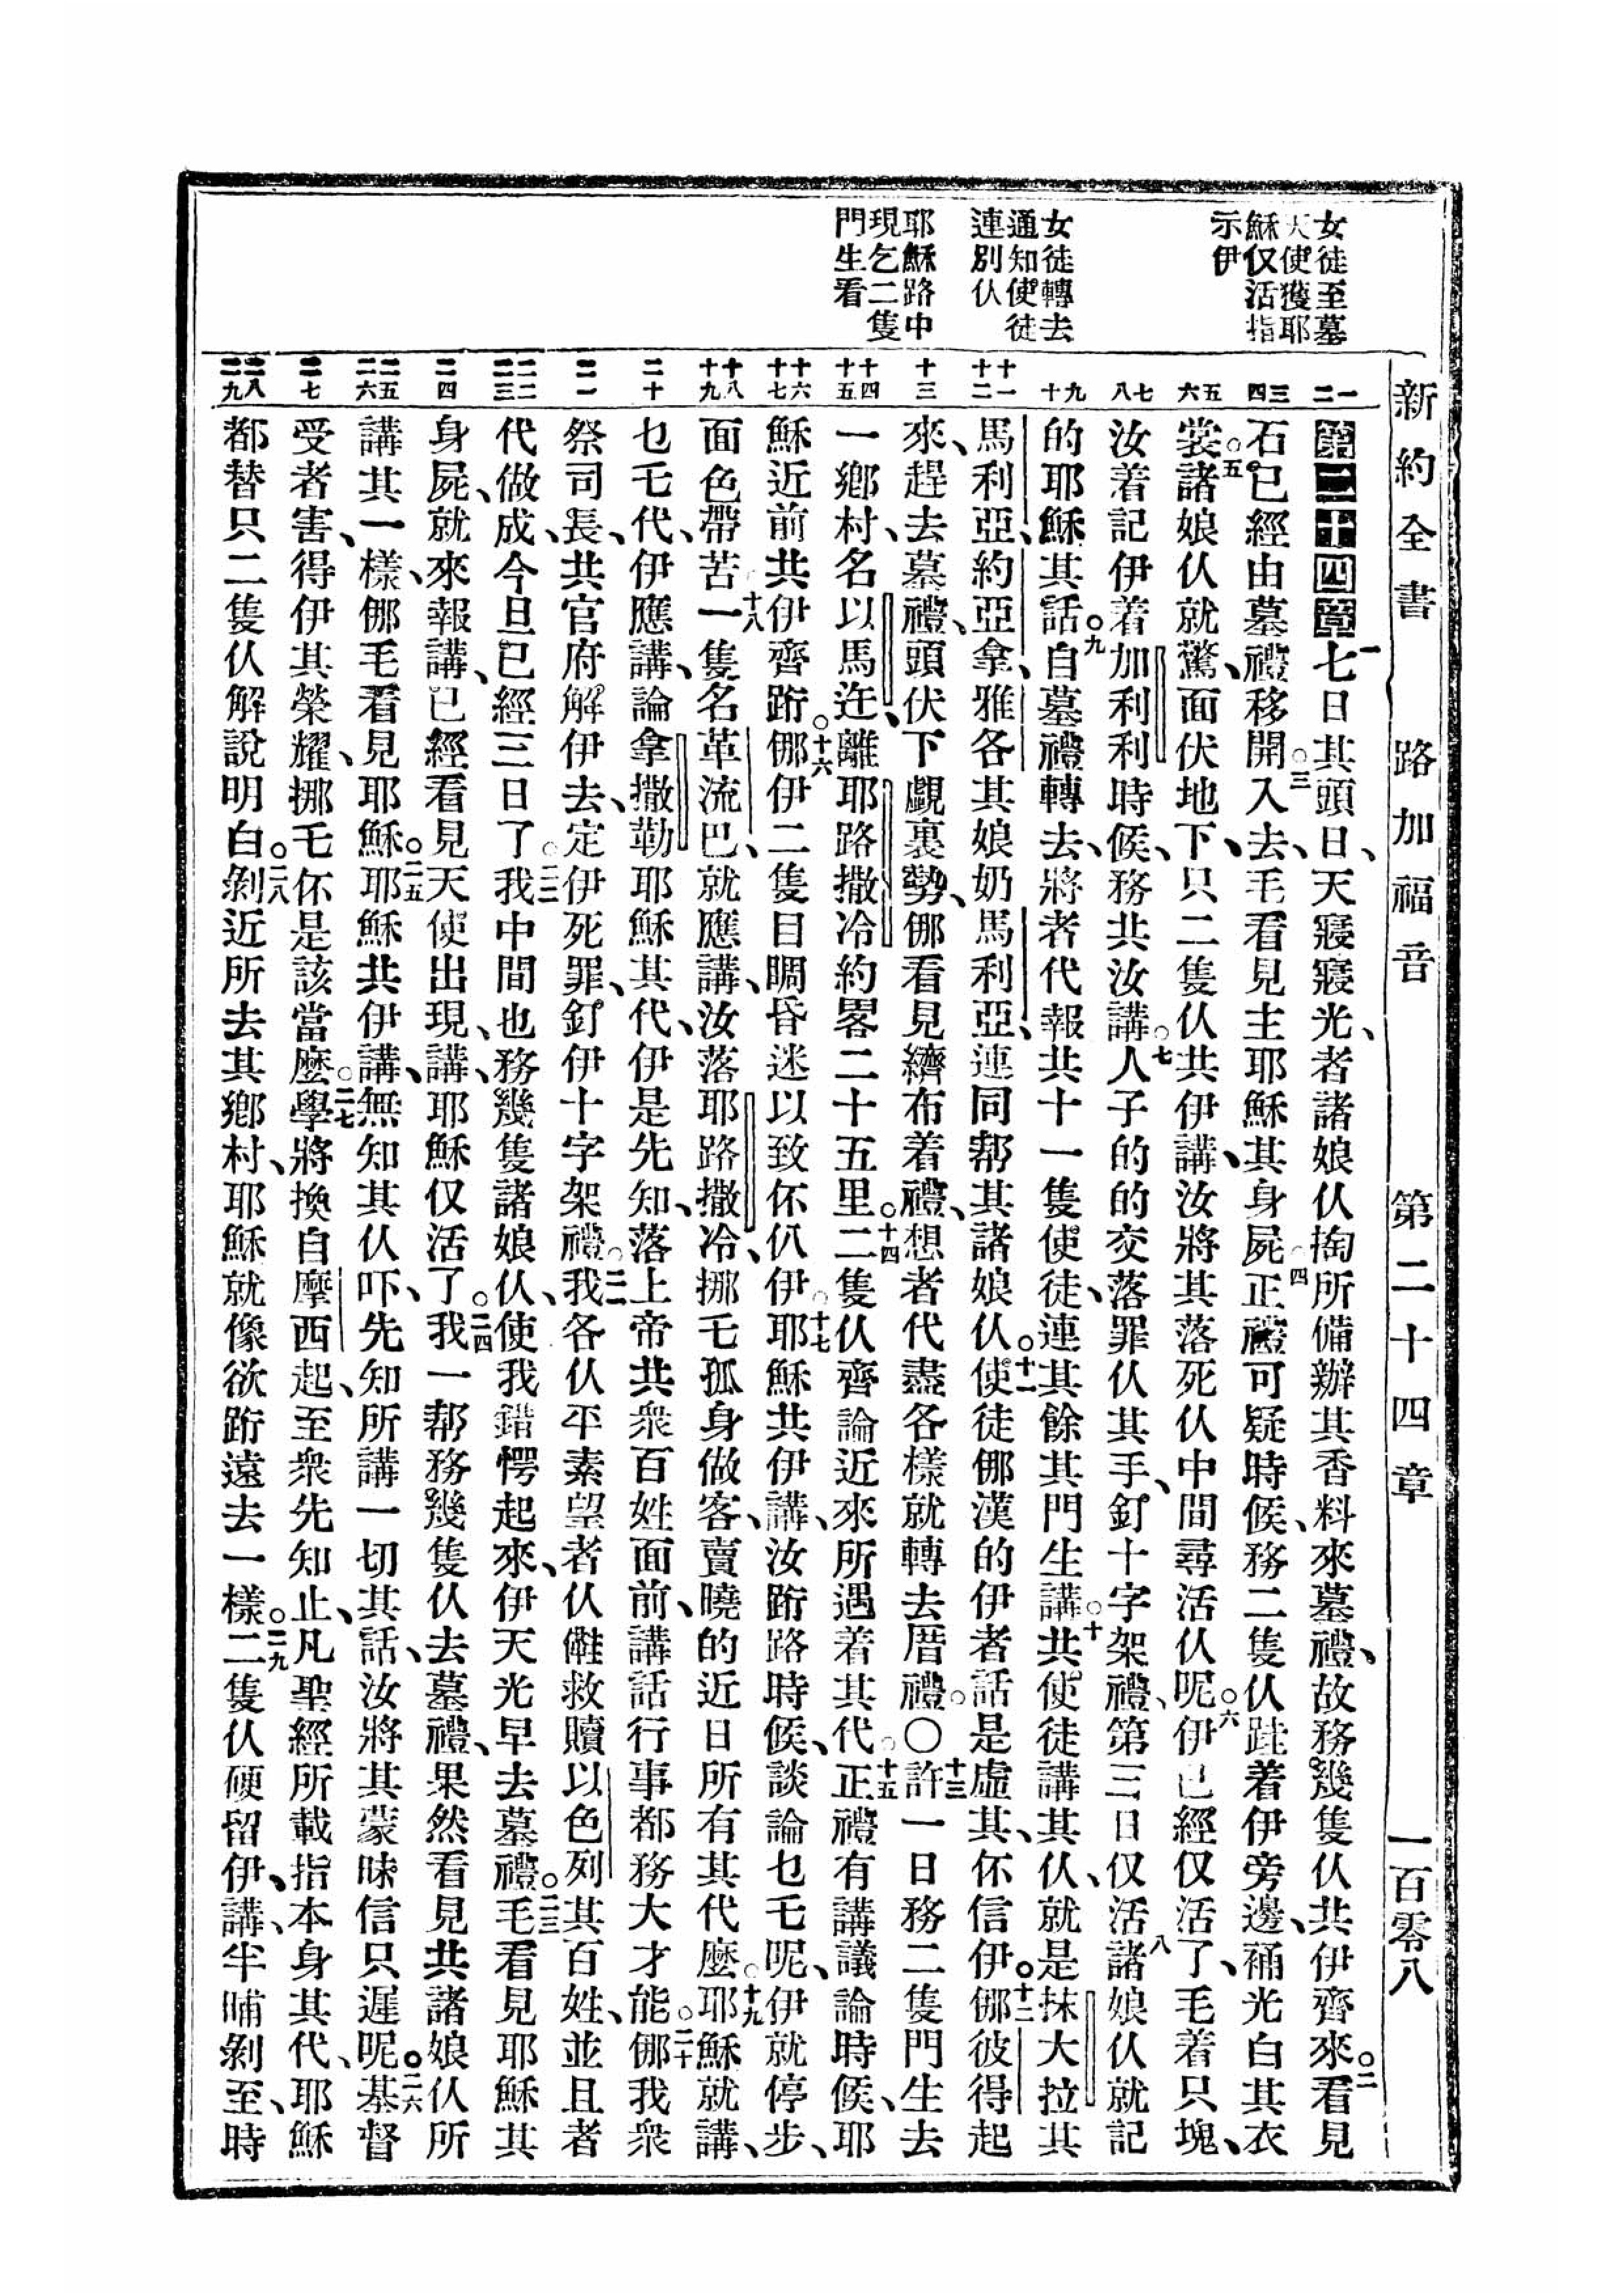 新約全書　路加福音　第二十四章　一百零八
女徒至墓
天使獲耶
穌仅活指
示伊
女徒轉去
通知使徒
連別仈
耶穌路中
現乞二隻
門生看
一 二
三 四
五 六
七 八
九 十
十一 十二
十三
十四 十五
十六 十七
十八 十九
二十
二一
二二 二三
二四
二五 二六
二七
二八 二九
第二十四章一七日其頭日、天寢寢光、者諸娘仈掏所備辦其香料來墓禮、故務幾隻仈共伊齊來。二看見
石已經由墓禮移開。三入去、毛看見主耶穌其身屍。四正禮可疑時候、務二隻仈跬着伊旁邊、䘄光白其衣
裳。五諸娘仈就驚、面伏地下、只二隻仈共伊講、汝將其落死仈中間尋活仈呢。六伊已經仅活了、毛着只塊、
汝着記伊着加利利時候、務共汝講。七人子的的交落罪仈其手、釘十字架禮、第三日仅活八諸娘仈就記
的耶穌其話。九自墓禮轉去、將者代報共十一隻使徒、連其餘其門生講。十共使徒講其仈、就是抹大拉其
馬利亞、約亞拿、雅各其娘奶馬利亞、連同幇其諸娘仈。十一使徒㑚漢的伊者話是虛其、伓信伊。十二㑚彼得起
來、趕去墓禮、頭伏下覷裏勢、㑚看見纃布着禮、想者代盡各樣就轉去厝禮。〇十三許一日務二隻門生去
一鄉村、名以馬迕、離耶路撒冷約畧二十五里。十四二隻仈齊論近來所遇着其代。十五正禮有講議論時候、耶
穌近前共伊齊跲。十六㑚伊二隻目瞯昏迷以致伓仈伊。十七耶穌共伊講、汝跲路時候、談論乜毛呢、伊就停步、
面色帶苦十八一隻名革流巴、就應講、汝落耶路撒冷、挪乇孤身做客、賣曉的近日所有其代麽。十九耶穌就講、
乜乇代、伊應講、論拿撒勒耶穌其代、伊是先知、落上帝共衆百姓面前、講話行事都務大才能。二十㑚我衆
祭司長、共官府解伊去、定伊死罪、釘伊十字架禮。二一我各仈平素望者仈㒕救贖以色列其百姓、並且者
代做成、今旦已經三日了。二二我中間也務幾隻諸娘仈、使我錯愕起來、伊天光早去墓禮。二三毛看見耶穌其
身屍、就來報講、已經看見天使出現、講、耶穌仅活了。二四我一幇務幾隻仈去墓禮、果然看見共諸娘仈所
講其一樣、㑚毛看見耶穌。二五耶穌共伊講、無知其仈吓、先知所講一切其話、汝將其蒙昧信只遲呢。二六基督
受者害、得伊其榮耀、挪毛伓是該當麽。二七學將換自摩西起、至衆先知止、凡聖經所載指本身其代、耶穌
都替只二隻仈解說明白。二八剝近所去其鄉村、耶穌就像欲跲遠去一樣。二九二隻仈硬留伊、講、半晡剝至、時